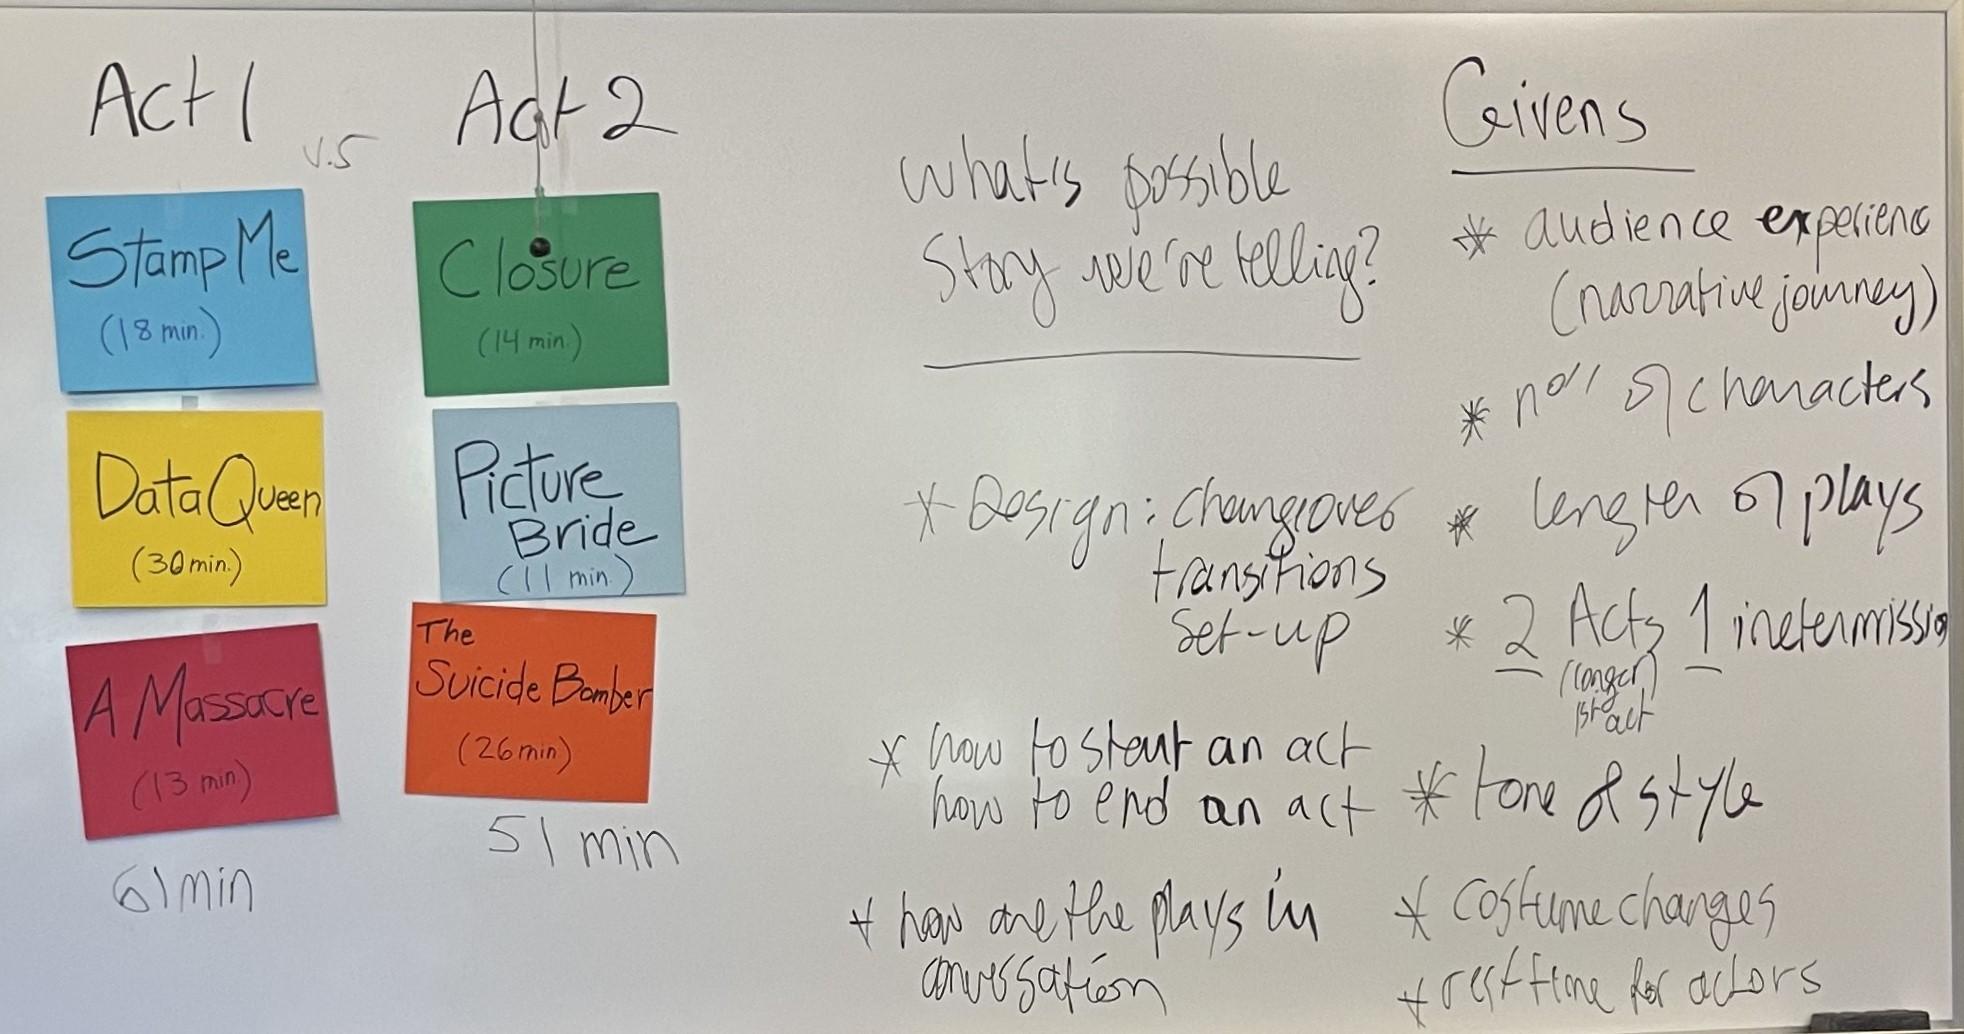 Act 1
v.s
Act 2
Stamp Me
(18 min.)
Data Queen
(30 min.)
A Massacre
(13 min.)
61 min
Closure
(14 min.)
Picture
Bride
(11 min.)
The
Suicide Bomber
(26 min)
51 min
What's possible
Story we're telling?
* Design: changeover
transitions
Set-up
* how to start an act
how to end an act
* how are the plays in
conversation
Givens
* audience experienc
(narrative journey)
* of characters
* length of plays
* 2 Acts 1 inetermission
(longer)
1st act
* tone & style
* Costume changes
* rest time for actors